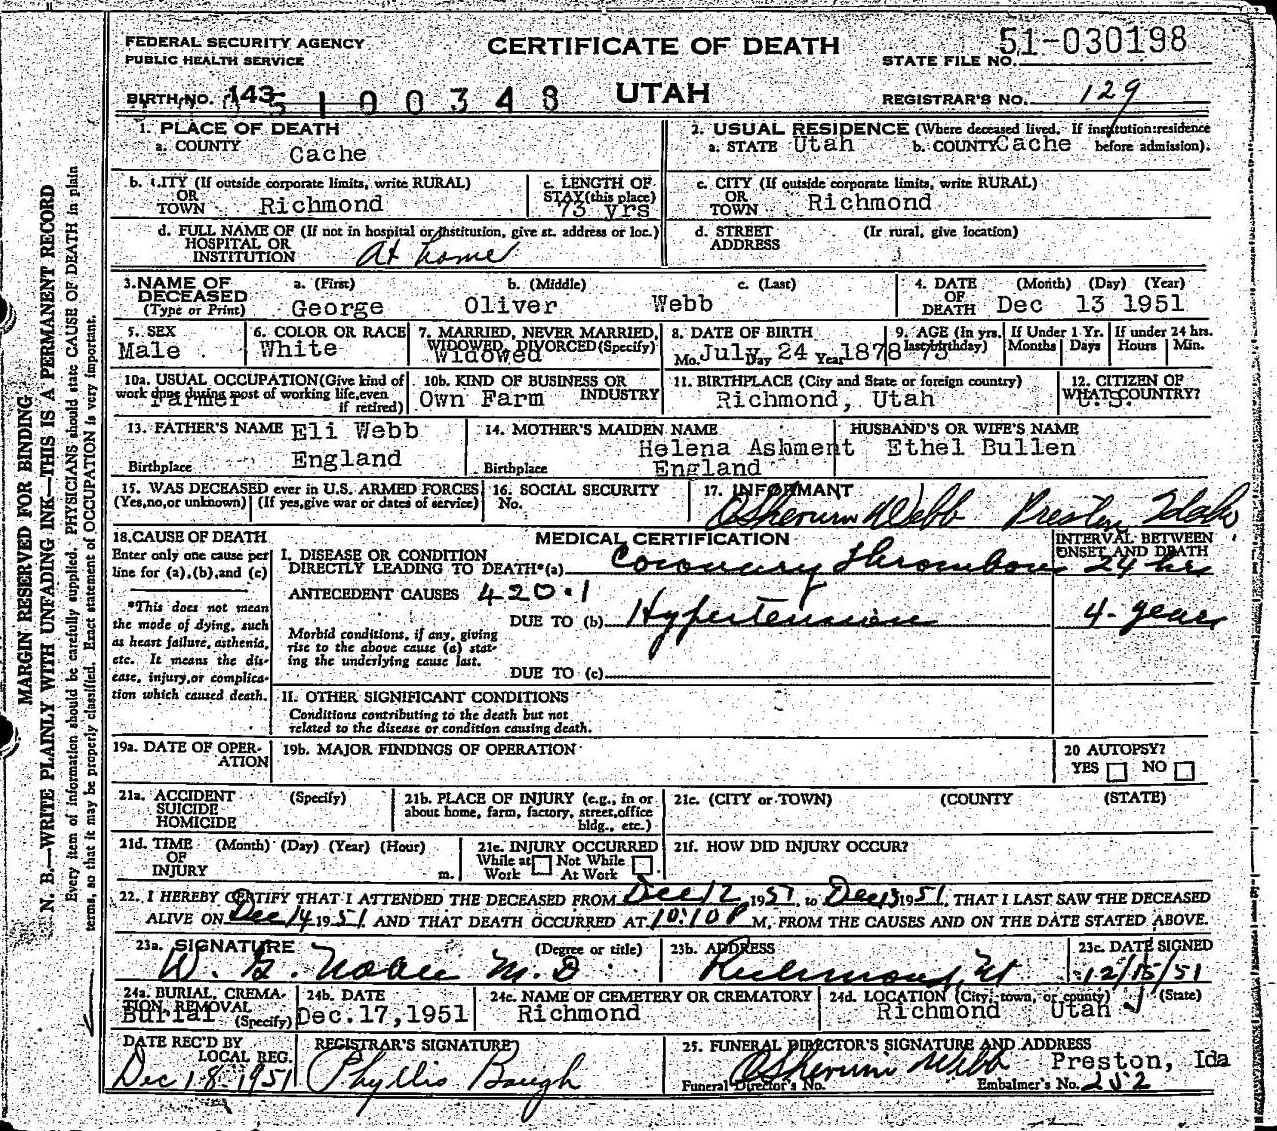 FEDERAL SECURITY AGENCY
PUBLIC HEALTH SERVICE
CERTIFICATE OF DEATH
UTAH
51-030198
STATE FILE NO.
BIRTH NO. 143
5 1 0 0 3 4 8
REGISTRAR'S NO. 129
1. PLACE OF DEATH
a. COUNTY Cache
2. USUAL RESIDENCE (Where deceased lived. If institution: residence before admission).
a. STATE Utah b. COUNTY Cache
b. CITY (If outside corporate limits, write RURAL)
OR
TOWN Richmond
c. LENGTH OF
STAY (this place)
73 yrs
c. CITY (If outside corporate limits, write RURAL)
OR
TOWN Richmond
d. FULL NAME OF (If not in hospital or institution, give st. address or loc.)
HOSPITAL OR
INSTITUTION At home
d. STREET
ADDRESS
(Ir rural, give location)
3. NAME OF
DECEASED
(Type or Print)
a. (First) b. (Middle) c. (Last)
George Oliver Webb
4. DATE
OF
DEATH
(Month) (Day) (Year)
Dec 13 1951
5. SEX
Male
6. COLOR OR RACE
White
7. MARRIED, NEVER MARRIED,
WIDOWED, DIVORCED (Specify)
Widowed
8. DATE OF BIRTH
Mo. July Day 24 Year 1878
9. AGE (In yrs.
last birthday)
73
If Under 1 Yr.
Months Days
If under 24 hrs.
Hours Min.
10a. USUAL OCCUPATION (Give kind of
work done during most of working life, even
if retired)
Farmer
10b. KIND OF BUSINESS OR
INDUSTRY
Own Farm
11. BIRTHPLACE (City and State or foreign country)
Richmond, Utah
12. CITIZEN OF
WHAT COUNTRY?
U. S.
13. FATHER'S NAME Eli Webb
Birthplace England
14. MOTHER'S MAIDEN NAME
Helena Ashment
Birthplace England
HUSBAND'S OR WIFE'S NAME
Ethel Bullen
15. WAS DECEASED ever in U.S. ARMED FORCES
(Yes, no, or unknown) (If yes, give war or dates of service)
16. SOCIAL SECURITY
No.
17. INFORMANT
Webb Preston, Idaho
18. CAUSE OF DEATH
Enter only one cause per
line for (a), (b), and (c)
*This does not mean
the mode of dying, such
as heart failure, asthenia,
etc. It means the dis-
ease, injury, or complica-
tion which caused death.
MEDICAL CERTIFICATION
INTERVAL BETWEEN
ONSET AND DEATH
I. DISEASE OR CONDITION
DIRECTLY LEADING TO DEATH*(a) Coronary Thrombosis 24 hrs
ANTECEDENT CAUSES 420.1
DUE TO (b) Hypertension 4 - years
Morbid conditions, if any, giving
rise to the above cause (a) stat-
ing the underlying cause last.
DUE TO (c)
II. OTHER SIGNIFICANT CONDITIONS
Conditions contributing to the death but not
related to the disease or condition causing death.
19a. DATE OF OPER-
ATION
19b. MAJOR FINDINGS OF OPERATION
20 AUTOPSY?
YES NO
21a. ACCIDENT
SUICIDE
HOMICIDE
(Specify)
21b. PLACE OF INJURY (e.g., in or
about home, farm, factory, street, office
bldg., etc.)
21c. (CITY or TOWN) (COUNTY) (STATE)
21d. TIME
OF
INJURY
(Month) (Day) (Year) (Hour)
m.
21e. INJURY OCCURRED
While at Work Not While At Work
21f. HOW DID INJURY OCCUR?
22. I HEREBY CERTIFY THAT I ATTENDED THE DECEASED FROM Dec 12 1951, to Dec 13 1951, THAT I LAST SAW THE DECEASED
ALIVE ON Dec 14 1951 AND THAT DEATH OCCURRED AT 10:10 P M, FROM THE CAUSES AND ON THE DATE STATED ABOVE.
23a. SIGNATURE (Degree or title)
W. G. M. D
23b. ADDRESS
Richmond, Ut
23c. DATE SIGNED
12/15/51
24a. BURIAL, CREMA-
TION REMOVAL
(Specify)
Burial
24b. DATE
Dec. 17, 1951
24c. NAME OF CEMETERY OR CREMATORY
Richmond
24d. LOCATION (City, town, or county) (State)
Richmond Utah
DATE REC'D BY
LOCAL REG.
Dec 18 1951
REGISTRAR'S SIGNATURE
Phyllis Baugh
25. FUNERAL DIRECTOR'S SIGNATURE AND ADDRESS
Webb Preston, Ida
Funeral Director's No. Embalmer's No. 252
MARGIN RESERVED FOR BINDING
N. B.—WRITE PLAINLY WITH UNFADING INK—THIS IS A PERMANENT RECORD
Every item of information should be carefully supplied. PHYSICIANS should state CAUSE OF DEATH in plain
terms, so that it may be properly classified. Exact statement of OCCUPATION is very important.